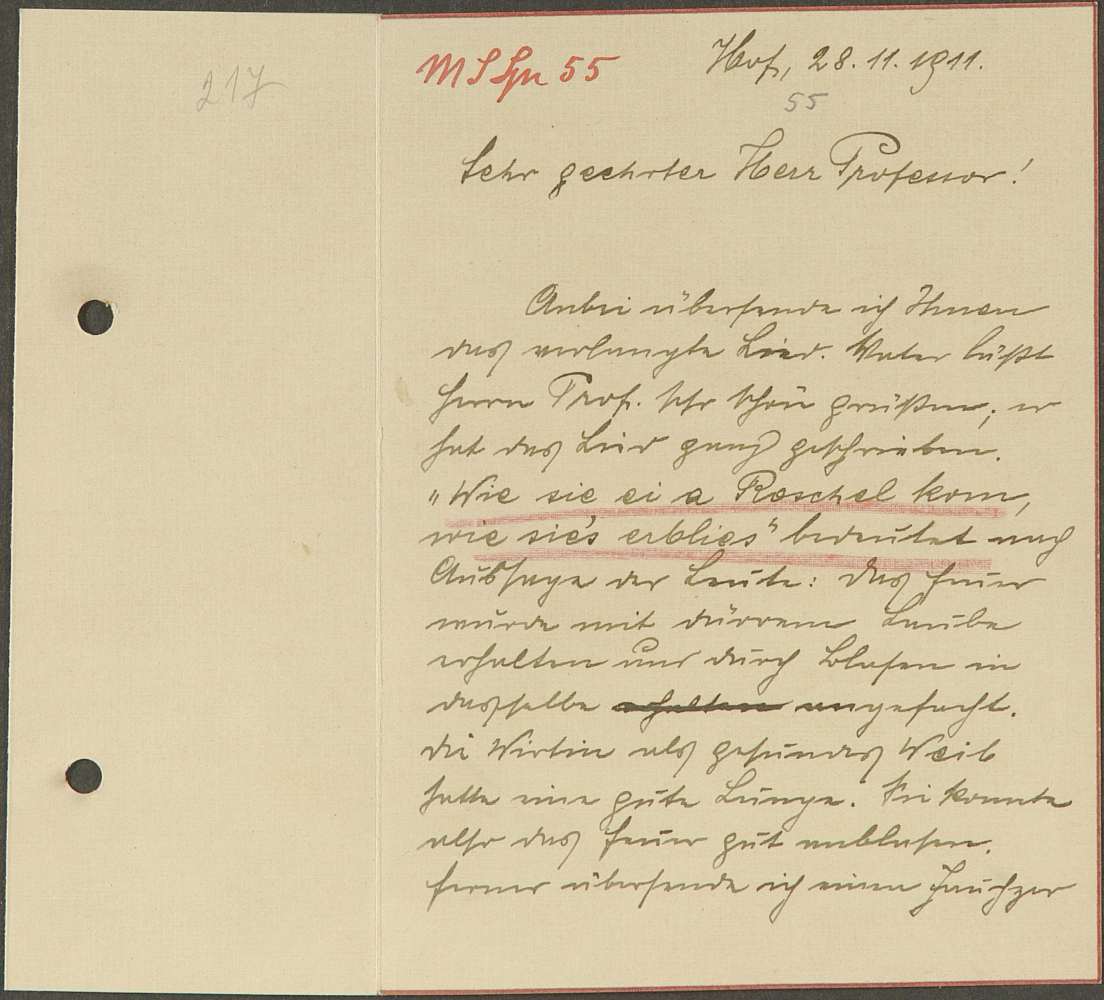 217
MS Spn 55
Hof, 28. 11. 1911.
55
Sehr geehrter Herr Professor!
Anbei übersende ich Ihnen
das verlangte Lied. Vater läßt
Herrn Prof. sehr schön grüßen; er
hat das Lied ganz geschrieben.
„Wie sie ei a Roschel kom,
wie sie's erblies" bedeutet nach
Aussage der Leute: Das Feuer
wurde mit dürrem Laube
erhalten und durch Blasen in
dasselbe erhalten angefacht.
Die Wirtin als gesundes Weib
hatte eine gute Lunge. Sie konnte
also das Feuer gut anblasen.
Ferner übersende ich einen Jauchzer